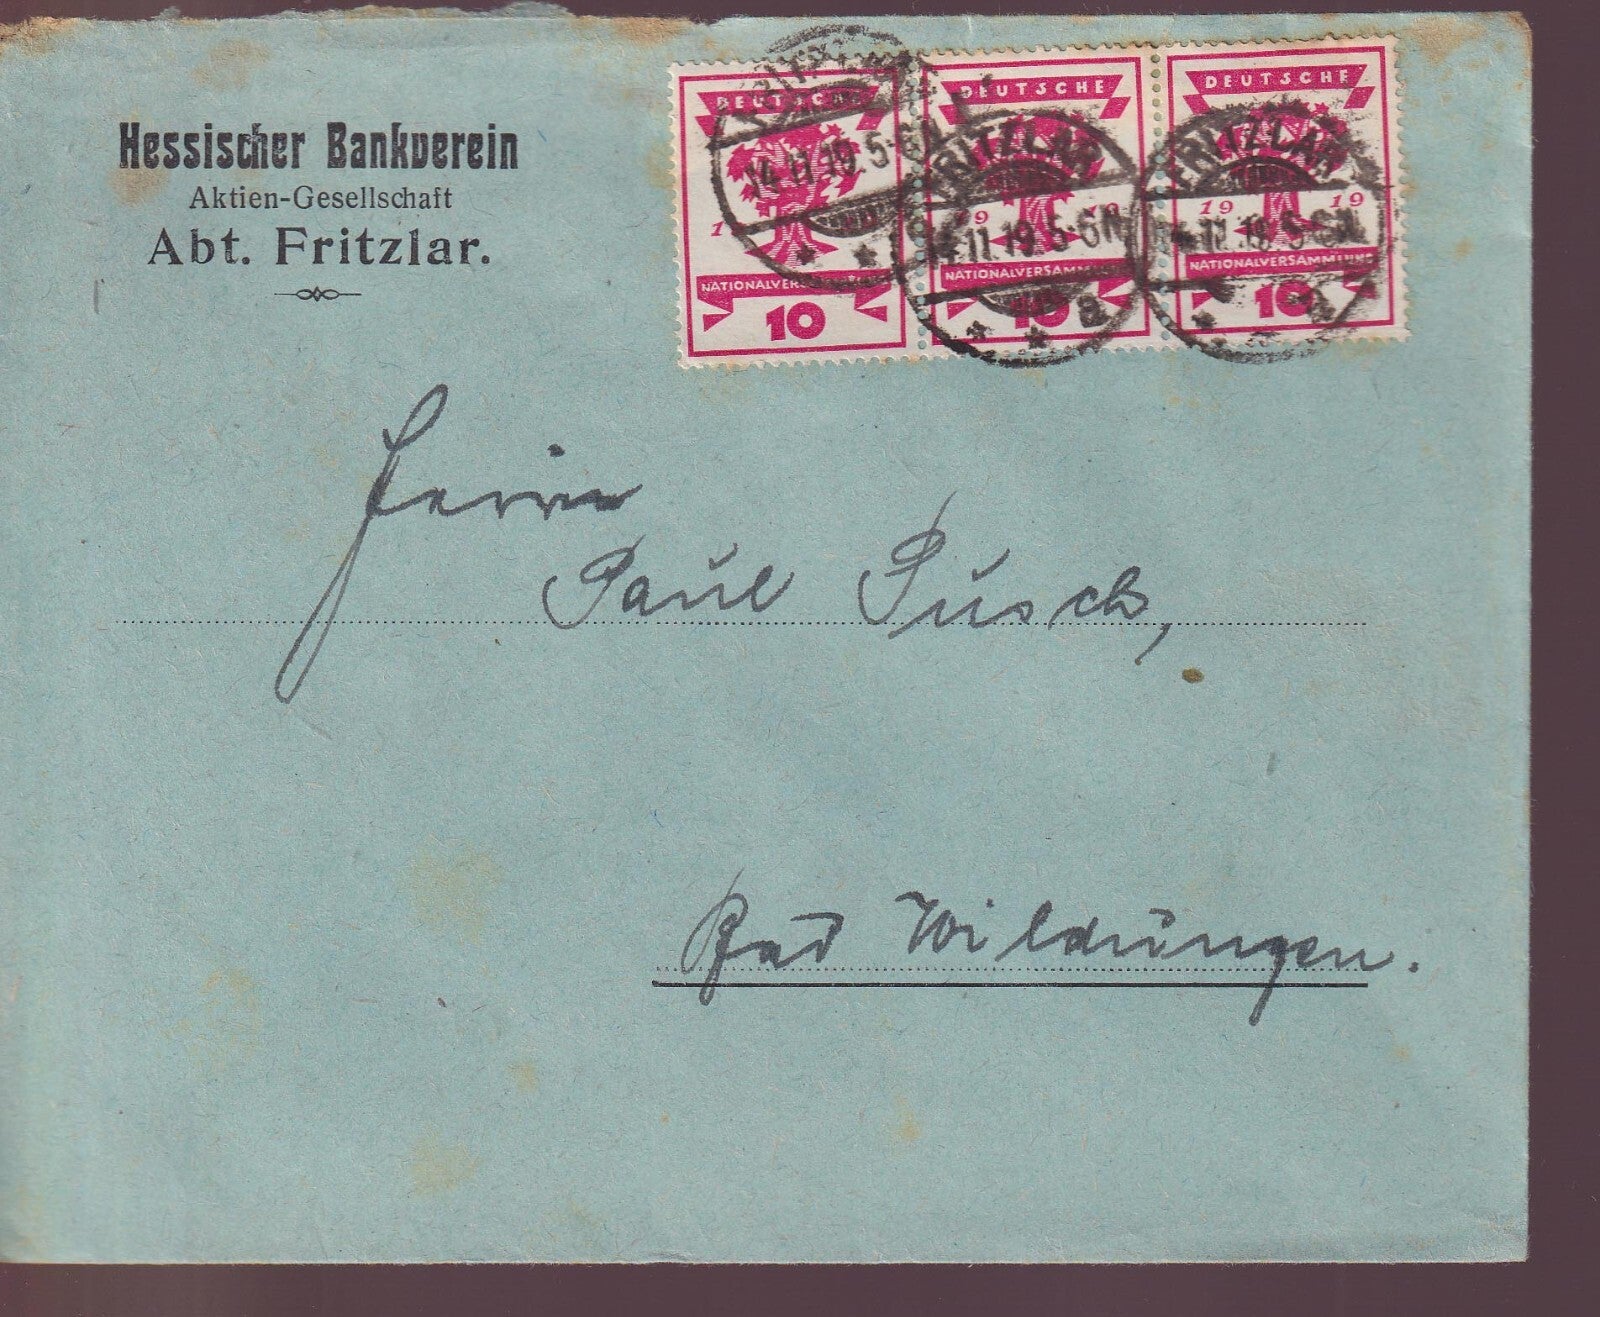 Hessischer Bankverein
Aktien-Gesellschaft
Abt. Fritzlar.
DEUTSCHE
NATIONALVERS
10
14.11.19.5-6N
DEUTSCHE
19 19
NATIONALVERSAMM
10
FRITZLAR
14.11.19.5-6N
a
DEUTSCHE
19 19
NATIONALVERSAMMLUNG
10
FRITZLAR
14.11.19.5-6N
a
Herrn
Paul Pusch,
Bad Wildungen.